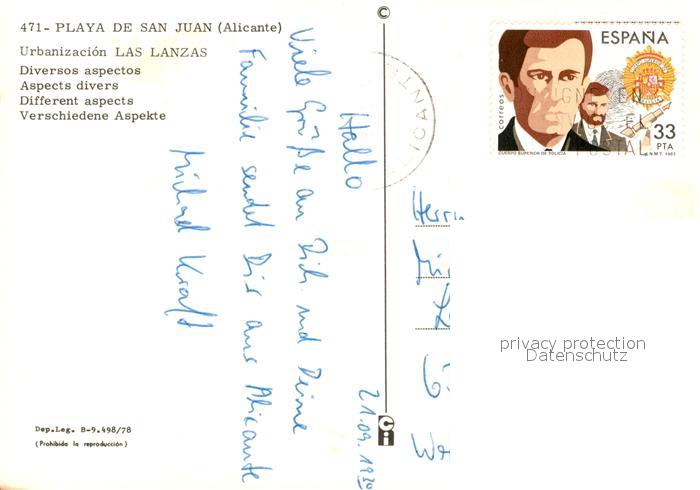 471- PLAYA DE SAN JUAN (Alicante)
Urbanización LAS LANZAS
Diversos aspectos
Aspects divers
Different aspects
Verschiedene Aspekte
Hallo
Viele Grüße an Dich und Deine
Familie sendet Dir aus Alicante
Michael Kraft
21.09.19
Dep.Leg. B-9.498/78
(Prohibida la reproducción)
©
Ci
ALICANTE
ESPAÑA
correos
33
PTA
CUERPO SUPERIOR DE POLICIA
F.N.M.T. 1983
POSTAL
Herrn
privacy protection
Datenschutz